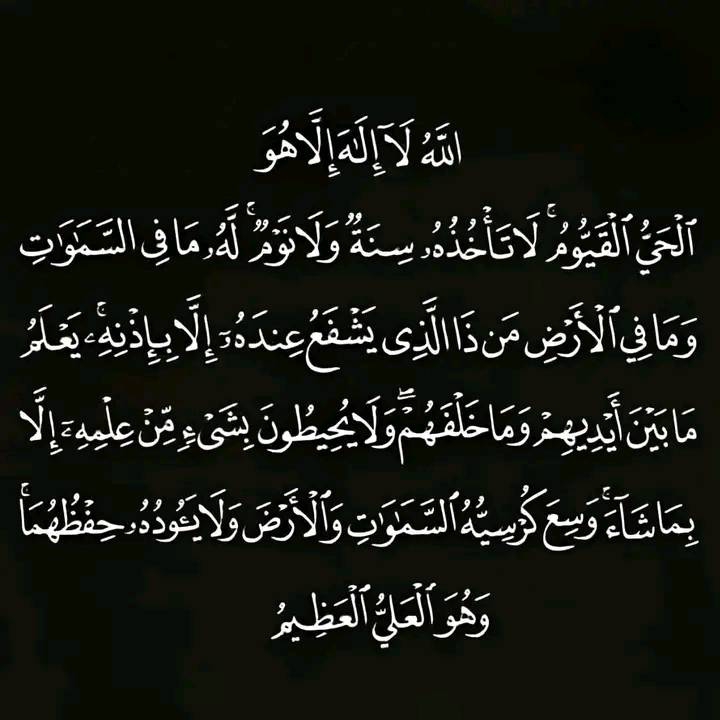 اللَّهُ لَآ إِلَٰهَ إِلَّا هُوَ
ٱلْحَيُّ ٱلْقَيُّومُ ۚ لَا تَأْخُذُهُۥ سِنَةٌ وَلَا نَوْمٌ ۚ لَّهُۥ مَا فِى السَّمَٰوَٰتِ
وَمَا فِي ٱلْأَرْضِ مَن ذَا الَّذِى يَشْفَعُ عِندَهُۥٓ إِلَّا بِإِذْنِهِۦ ۚ يَعْلَمُ
مَا بَيْنَ أَيْدِيهِمْ وَمَا خَلْفَهُمْ ۖ وَلَا يُحِيطُونَ بِشَىْءٍ مِّنْ عِلْمِهِۦٓ إِلَّا
بِمَا شَآءَ ۚ وَسِعَ كُرْسِيُّهُ ٱلسَّمَٰوَٰتِ وَٱلْأَرْضَ وَلَا يَـُٔودُهُۥ حِفْظُهُمَا ۚ
وَهُوَ ٱلْعَلِيُّ ٱلْعَظِيمُ